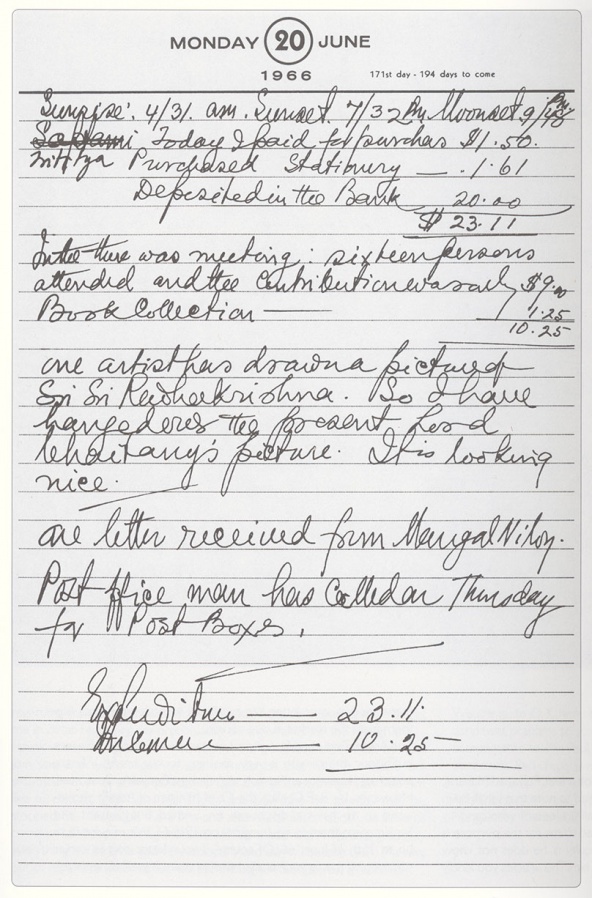 MONDAY 20 JUNE
1966 171st day - 194 days to come
Sunrise: 4/31 am. Sunset. 7/32 Pm Moonset 9/48 Pm
Today I paid for purchas $1.50.
Purchased Stationary — .1.61
Deposited in the Bank 20.00
$ 23.11
In the there was meeting: sixteen persons
attended and the contribution was only $9.00
Book Collection — 1.25
10.25
one artist has drawn a picture of
Sri Sri Radhakrishna. So I have
hanged over the present Lord
Chaitany's picture. It is looking
nice.
one letter received from Mangal Niloy.
Post office man has called on Thursday
for Post Boxes.
Expenditure — 23.11.
Income — 10.25